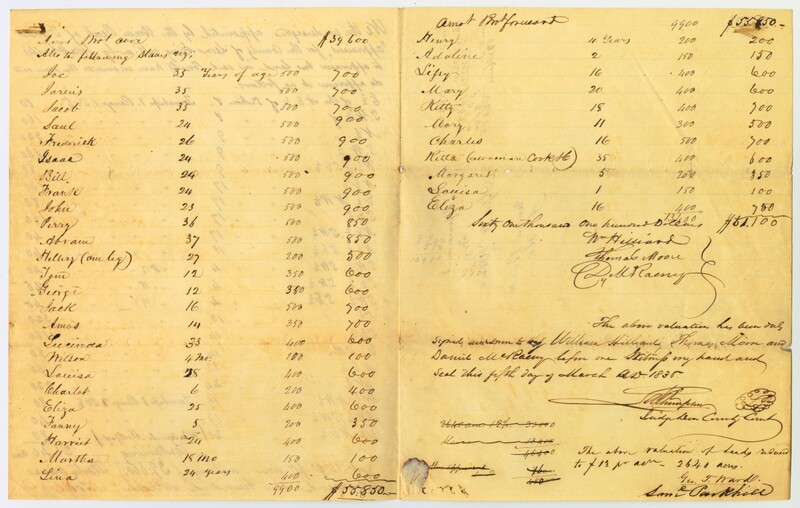 Amt Brot over $39,600
Also the following Slaves viz;
Joe 35 Years of age 500 700
Jarvis 35 500 700
Jacob 35 500 700
Saul 24 500 900
Frederick 26 500 900
Isaac 24 500 900
Bill 28 500 900
Frank 24 500 900
John 23 500 900
Perry 36 500 850
Abram 37 500 850
Hillery (one leg) 27 200 500
Tom 12 350 600
George 12 350 600
Jack 16 500 900
Amos 14 350 700
Lucinda 33 400 600
Wilson 4 mo 100 100
Louisa 28 400 600
Charlot 6 200 400
Eliza 25 400 600
Fanny 5 200 350
Harriet 24 400 600
Martha 18 mo 150 100
Lina 24 years 400 600
9900 $55,850
Amot Brot forward 9900 $55,850
Henry 4 Years 200 200
Adaline 2 150 150
Lipy 16 400 600
Mary 20 400 600
Kitty 18 400 700
Mary 11 300 500
Charles 16 500 700
Kitta (a woman Cook &c) 35 400 600
Margaret 5 200 350
Louisa 1 150 100
Eliza 16 400 750
Sixty One thousand One hundred Dollars
Wm Hilliard
Thomas Moore
D McRaeney
The above valuation has been duly
signed and sworn to by William Hilliard, Thomas Moore and
Daniel McRaeny before me Witness my hand and
Seal this fifth day of March AD 1835
Judge Leon County Court
The above valuation of lands reduced
to $13 pr acre 2640 acres.
Geo. T. Ward
Saml Parkhill